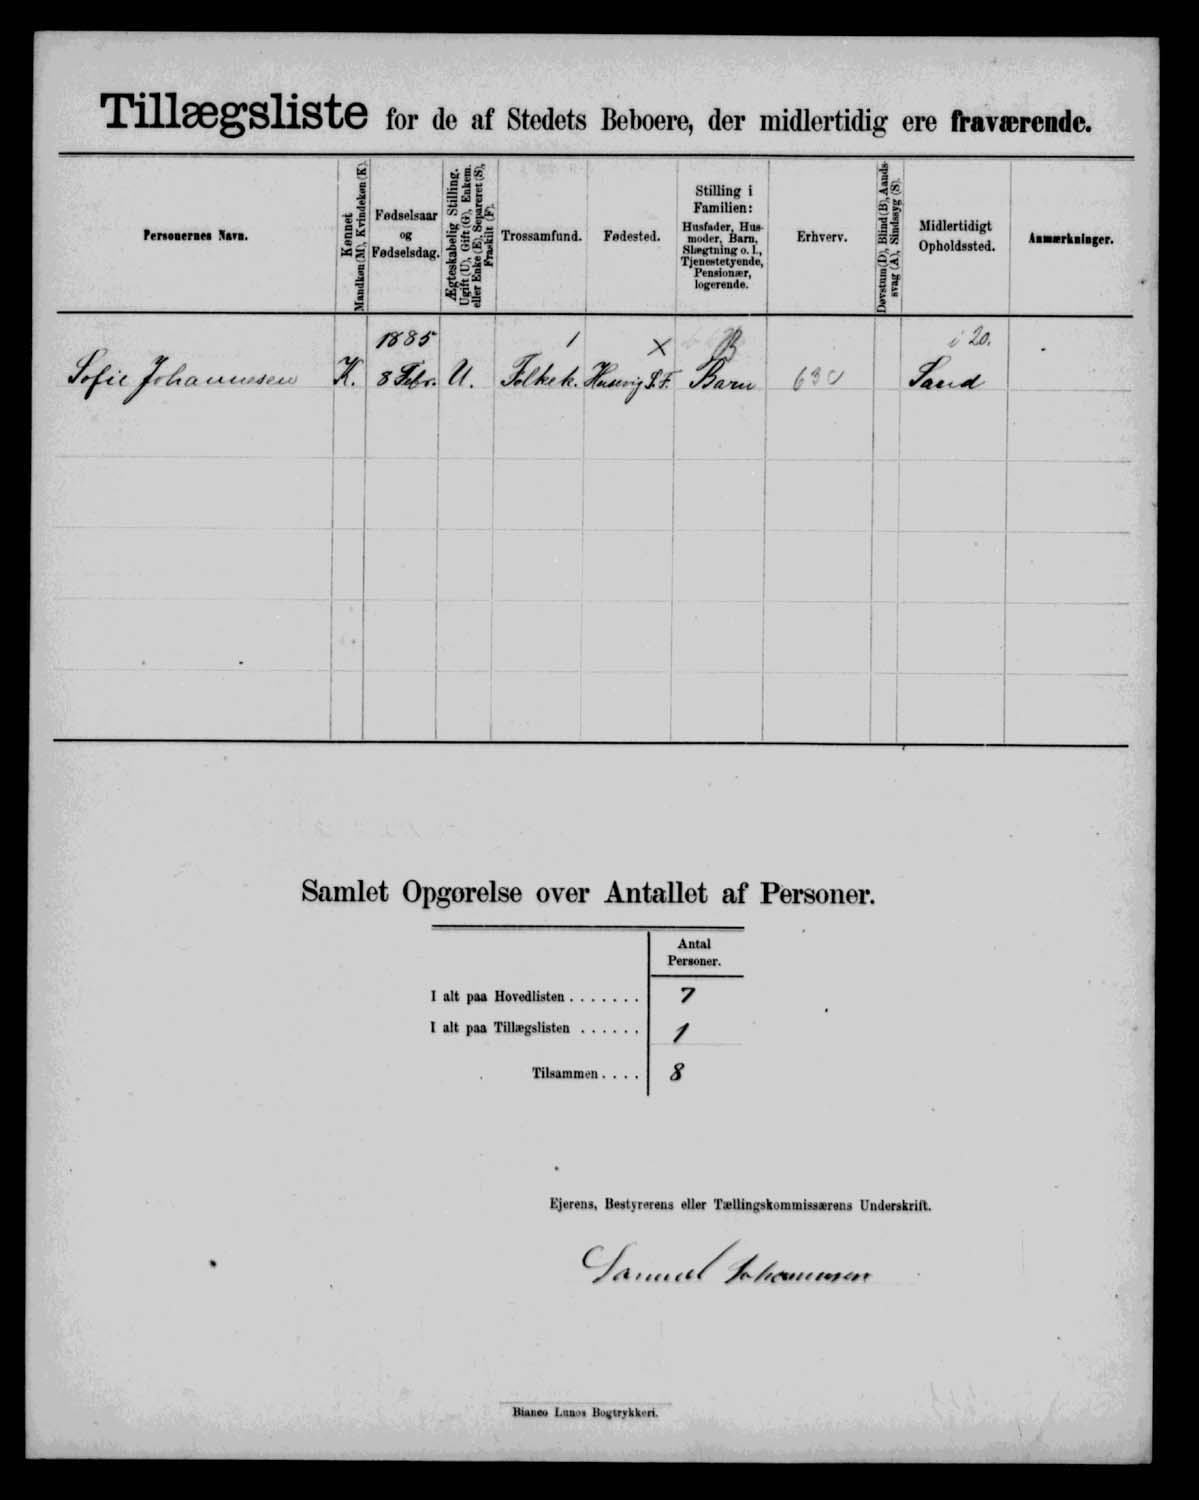 Tillægsliste for de af Stedets Beboere, der midlertidig ere fraværende.
Personernes Navn.
Kønnet
Mandkøn (M), Kvindekøn (K).
Fødselsaar
og
Fødselsdag.
Ægteskabelig Stilling.
Ugift (U), Gift (G), Enkem.
eller Enke (E), Separeret (S),
Fraskilt (F).
Trossamfund.
Fødested.
Stilling i
Familien:
Husfader, Hus-
moder, Barn,
Slægtning o. l.,
Tjenestetyende,
Pensionær,
logerende.
Erhverv.
Døvstum (D), Blind (B), Aands-
svag (A), Sindssyg (S).
Midlertidigt
Opholdssted.
Anmærkninger.
1885 1 X B i 20.
Sofie Johannesen K. 8 Febr. U. Folkek. Husevig S. F. Barn 630 Sand
Samlet Opgørelse over Antallet af Personer.
Antal
Personer.
I alt paa Hovedlisten . . . . . . . 7
I alt paa Tillægslisten . . . . . . 1
Tilsammen . . . . 8
Ejerens, Bestyrerens eller Tællingskommissærens Underskrift.
Samuel Johannesen
Bianco Lunos Bogtrykkeri.